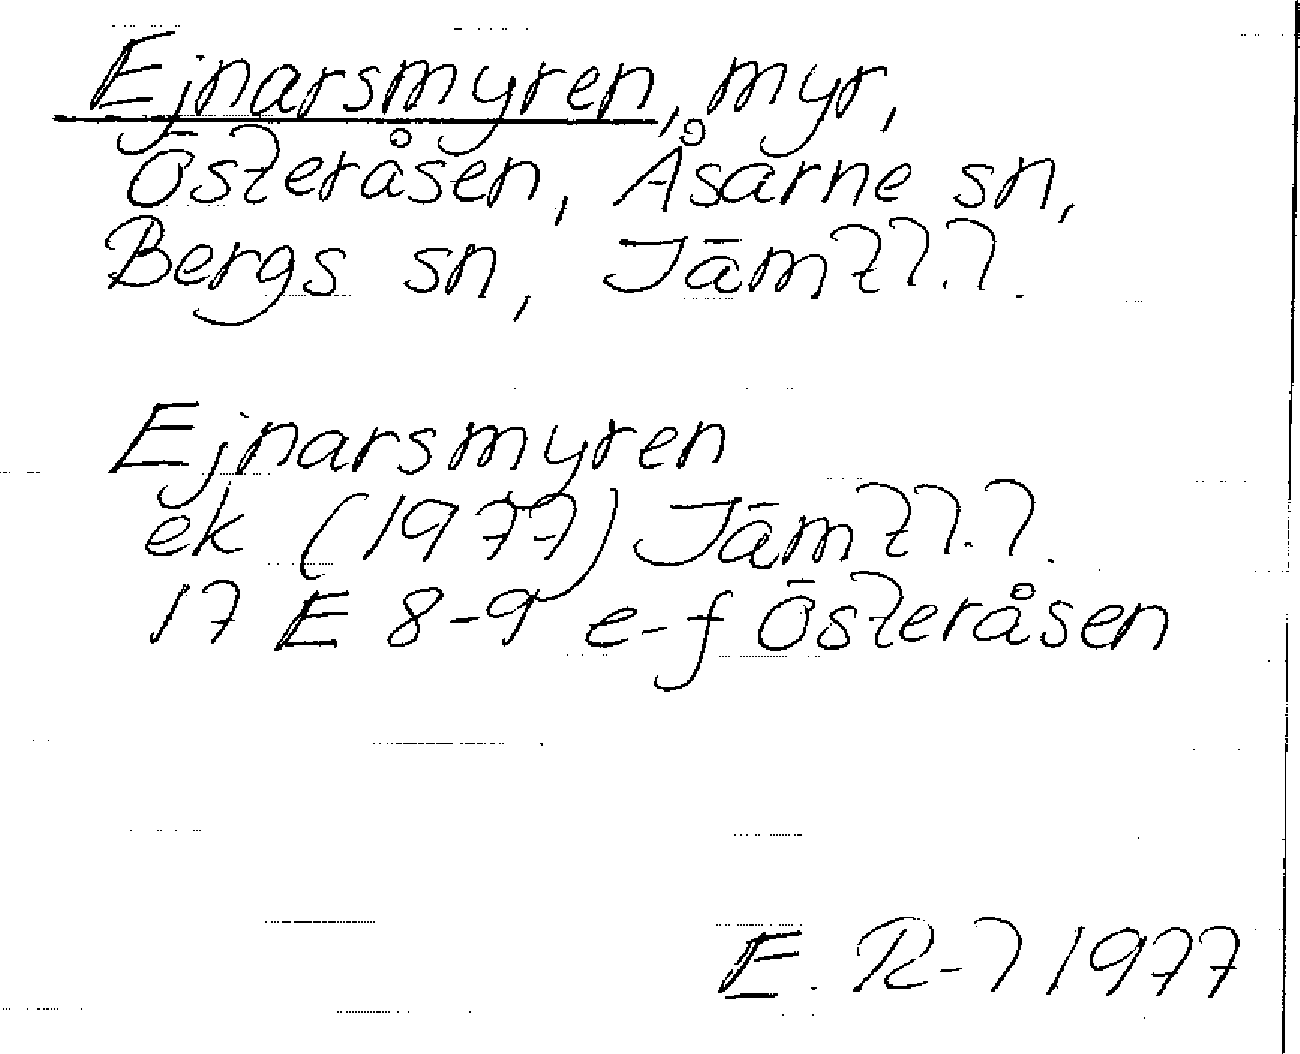 Ejnarsmyren, myr,
Österåsen, Åsarne sn,
Bergs sn, Jämtl.l.
Ejnarsmyren
ek (1977) Jämtl.l.
17 E 8-9 e-f Österåsen
E. R-l 1977